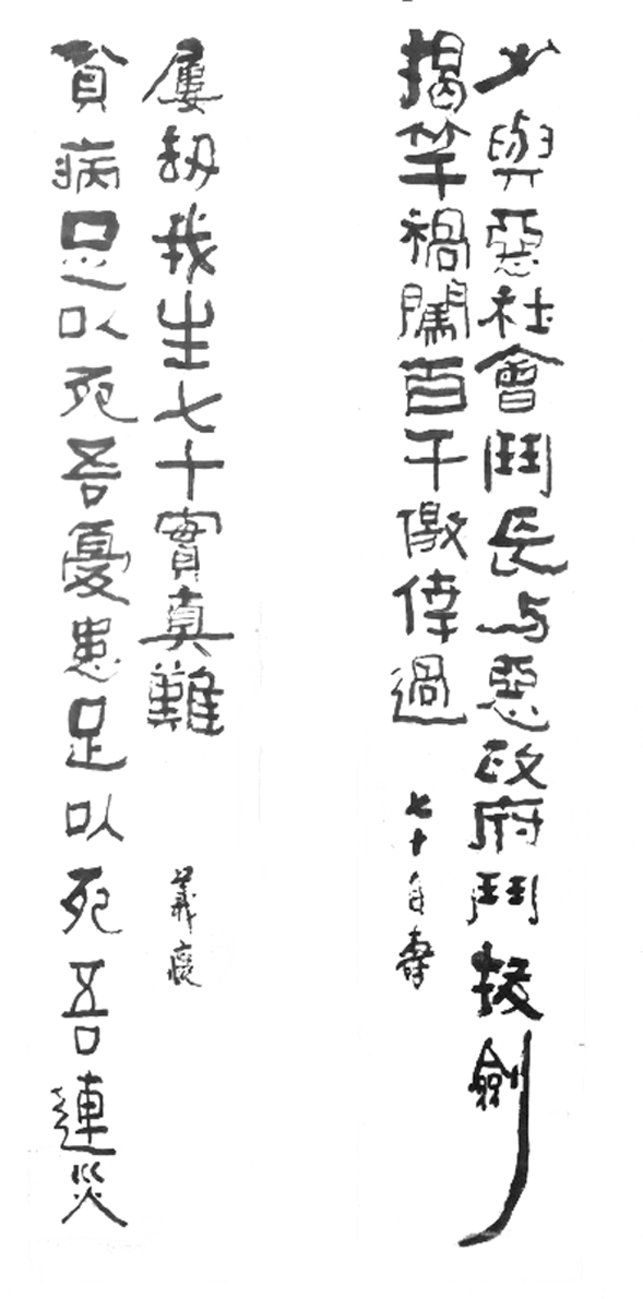 少與惡社會鬥長与惡政府鬥拔劍
揭竿禍闖百千儌倖過
七十自壽
貧病足以死吾憂患足以死吾連災
屢刼我生七十實真難
義